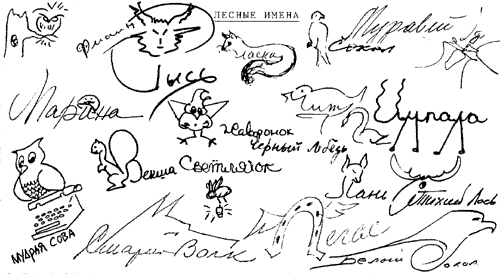 ЛЕСНЫЕ ИМЕНА
Рысь
Ласка
Сокол
Муравей
Марина
Жаворонок
Черный Лебедь
Векша
Светлячок
Лань
Тихий Лось
МУДРАЯ СОВА
Старый Волк
Пегас
Белый Сокол